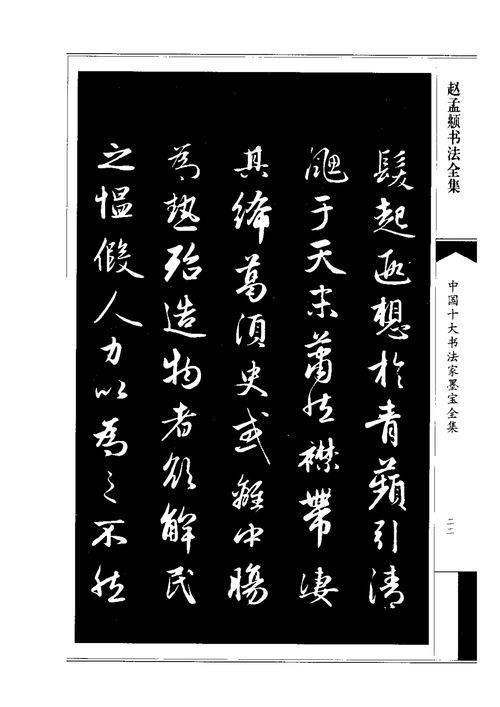 髮起遐想於青蘋引清
颸于天末蕭然襟帶凄
其絺葛須臾或離中暍
為熱殆造物者欲解民
之愠假人力以為之不然
赵孟頫书法全集
中国十大书法家墨宝全集
二二